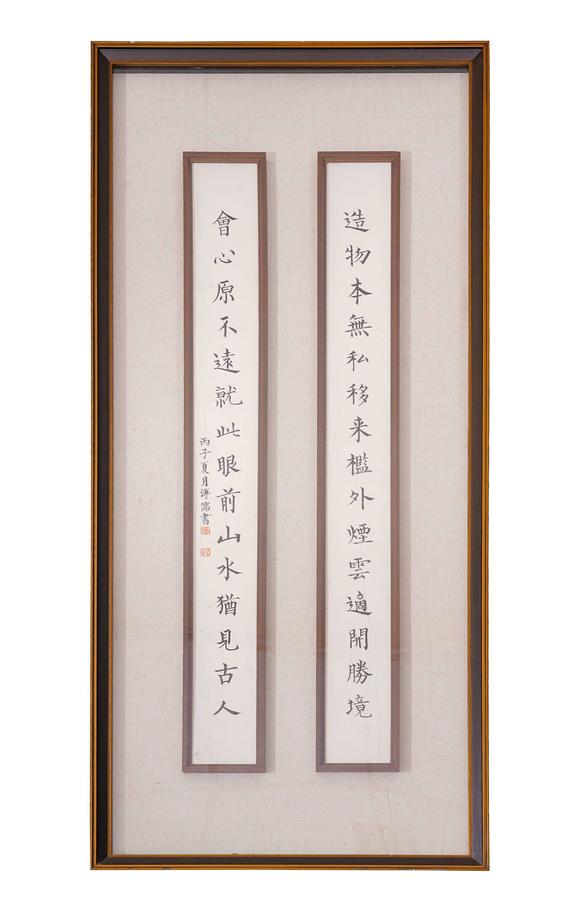 造物本無私移来檻外煙雲適開勝境
會心原不遠就此眼前山水猶見古人
丙子夏月溥儒書